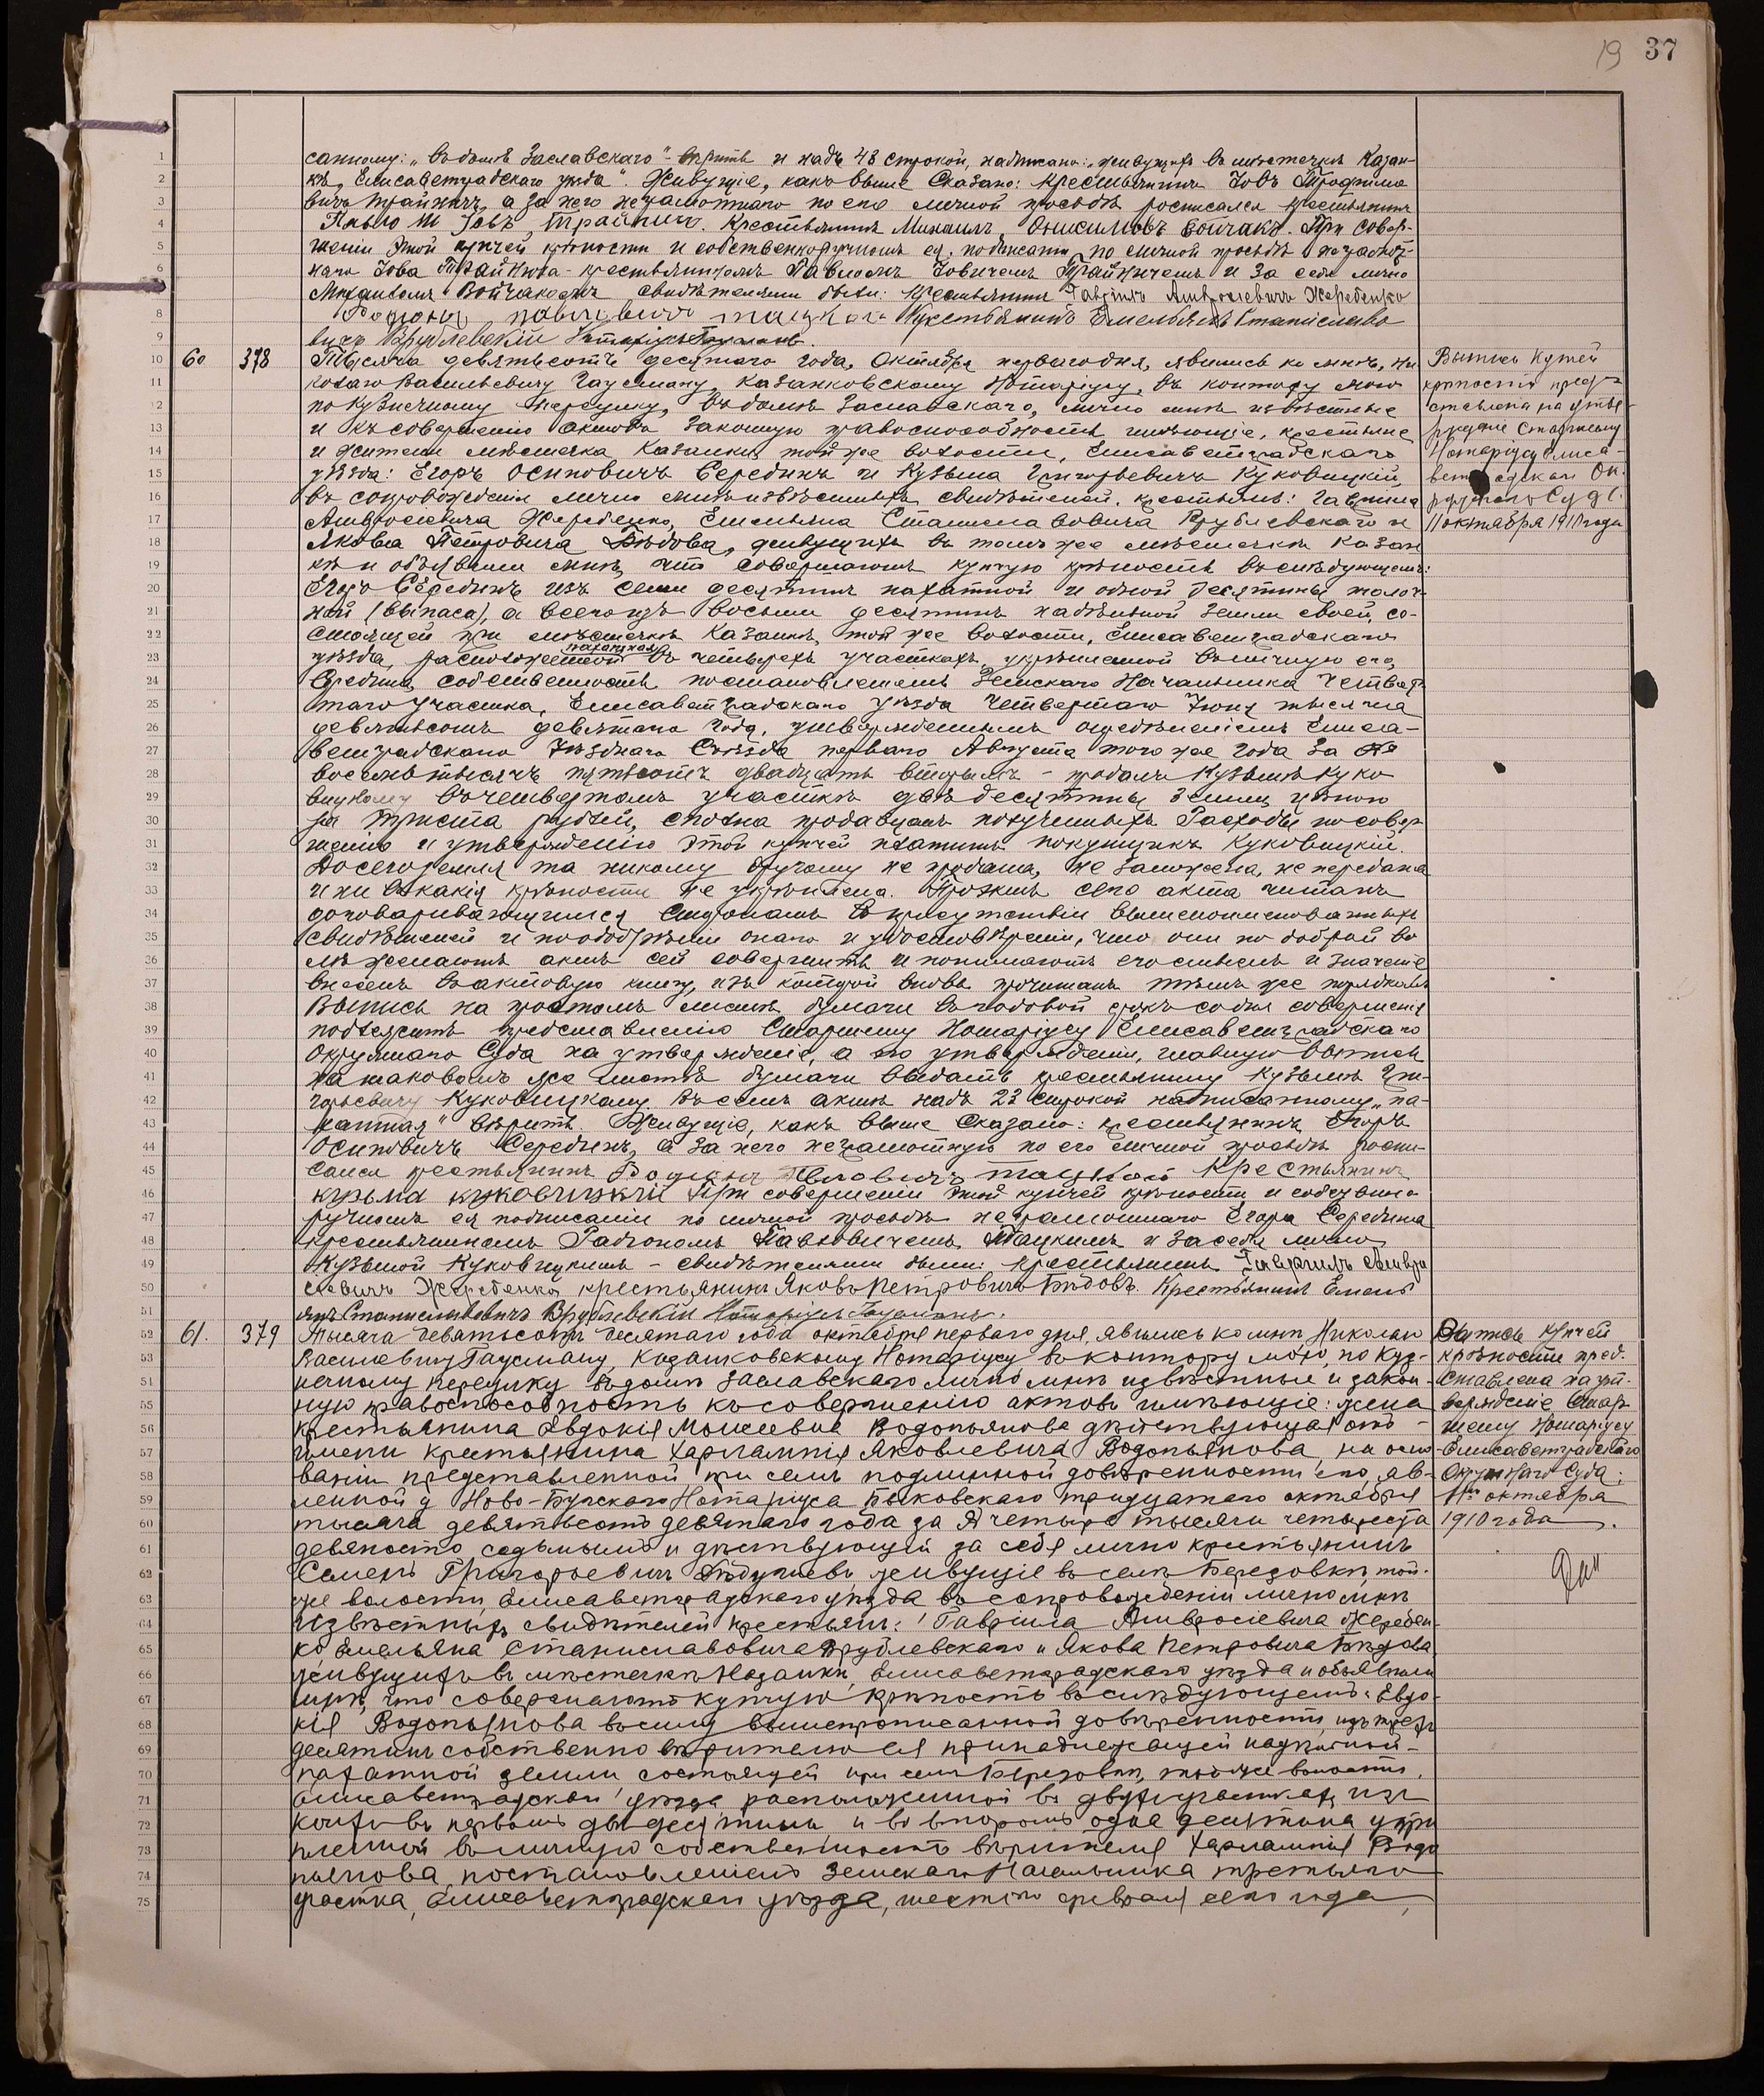 19 37
санному: „въ домѣ Заславскаго" - вѣрить и надъ 48 строкой, надписано: „живущихъ въ мѣстечкѣ Казан-
кѣ, Елисаветградскаго уѣзда". Живущіе, какъ выше сказано: крестьянинъ Іовъ Трофимо
вичъ Трайничъ, а за него неграмотнаго по его личной просьбѣ росписался крестьянинъ
Трайнич. Крестьянинъ Михаилъ Онисимовъ Войчакъ. При совер-
шеніи этой купчей крѣпости и собственноручномъ ея подписаніи, по личной просьбѣ неграмот-
наго Іова - крестьяниномъ Павломъ Іовичемъ Трайничемъ и за себя лично
Михаиломъ Войчакомъ свидѣтелями были: Крестьянинъ Гавріилъ Амвросіевичъ Жеребенко
Родіонъ Павловичъ Тацкій Крестьянинъ Емельянъ Станиславо
вичъ Врублевскій Нотаріусъ Гаусманъ.
60 378 Тысяча девятьсотъ десятаго года, Октября перваго дня, явились ко мнѣ, Ни
колаю Васильевичу Гаусману, Казанковскому Нотаріусу, въ контору мою
по Кузнечному переулку, въ домѣ Заславскаго, лично мнѣ извѣстные
и къ совершенію актовъ законную правоспособность имѣющіе, крестьяне
и жители мѣстечка Казанки, той же волости, Елисаветградскаго
уѣзда: Егоръ Осиповичъ Серединъ и Кузьма Григорьевичъ Куковицкій,
въ сопровожденіи лично мнѣ извѣстныхъ свидѣтелей, крестьянъ: Гавріила
Амвросіевича Жеребенко, Емельяна Станиславовича Врублевскаго и
Якова Петровича Бѣдова, живущихъ въ томъ же мѣстечкѣ Казан
кѣ и объявили мнѣ, что совершаютъ купчую крѣпость въ слѣдующемъ:
Егоръ Серединъ изъ семи десятинъ пахатной и одной десятины толоч-
ной (выпаса), а всего изъ восьми десятинъ надѣльной земли своей, со-
стоящей при мѣстечкѣ Казанкѣ, той же волости, Елисаветградскаго
уѣзда, расположенной въ четырехъ участкахъ, укрѣпленной въ личную его,
Середина, собственность постановленіемъ Земскаго Начальника Четвер-
таго участка, Елисаветградскаго уѣзда Четвертаго Іюня тысяча
девятьсотъ девятаго года, утвержденнымъ опредѣленіемъ Елиса-
ветградскаго Уѣзднаго Съѣзда перваго Августа того же года за №
восемь тысячъ пятьсотъ двадцать вторымъ - продалъ Кузьмѣ Куко
вицкому въ четвертомъ участкѣ двѣ десятины земли цѣною
за триста рублей, сполна продавцомъ полученныхъ. Расходы по совер-
шенію и утвержденію этой купчей платитъ покупщикъ Куковицкій.
До сего земля та никому другому не продана, не заложена, не передана
и ни въ какія крѣпости не укрѣплена. Проектъ сего акта читанъ
договаривающимся сторонамъ въ присутствіи вышепоименованныхъ
свидѣтелей и по одобреніи онаго и удостовѣреніи, что они по доброй во
лѣ желаютъ актъ сей совершить и понимаютъ его смыслъ и значеніе
внесенъ въ актовую книгу, изъ которой вновь прочитанъ тѣмъ же порядкомъ
Выпись на простомъ листѣ бумаги въ годовой срокъ со дня совершенія
подлежитъ представленію Старшему Нотаріусу Елисаветградскаго
Окружнаго Суда на утвержденіе, а по утвержденіи, главную выпись
на таковомъ же листѣ бумаги выдать крестьянину Кузьмѣ Гри-
горьевичу Куковицкому. Въ семъ актѣ надъ 23 строкой надписанному: „па-
хатная" вѣрить. Живущіе, какъ выше сказано: крестьянинъ Егоръ
Осиповичъ Серединъ, а за него неграмотнаго по его личной просьбѣ роспи-
сался крестьянинъ Родіонъ Павловичъ Тацкій Крестьянинъ
Кузьма Куковицкій При совершеніи этой купчей крѣпости и собственно
ручномъ ея подписаніи по личной просьбѣ неграмотнаго Егора Середина
крестьяниномъ Родіономъ Павловичемъ Тацкимъ и за себя лично
Кузьмой Куковицкимъ - свидѣтелями были: Крестьянинъ Гавріилъ Амвро
сіевичъ Жеребенко крестьянинъ Яковъ Петровичъ Бѣдовъ. Крестьянинъ Емель
янъ Станиславовичъ Врублевскій Нотаріусъ Гаусманъ.
Выпись купчей
крѣпости пред-
ставлена на утве-
ржденіе Старшему
Нотаріусу Елиса-
ветградскаго Ок-
ружнаго Суда.
11 октября 1910 года
61. 379 Тысяча девятьсотъ десятаго года октября перваго дня, явились ко мнѣ Николаю
Васильевичу Гаусману, Казанковскому Нотаріусу въ контору мою, по Куз-
нечному переулку въ домѣ Заславскаго лично мнѣ извѣстные и закон-
ную правоспособность къ совершенію актовъ имѣющіе: жена
крестьянина Евдокія Моисеевна Водопьянова дѣйствующая отъ
имени крестьянина Харлампія Яковлевича Водопьянова, на осно-
ваніи представленной при семъ подлинной довѣренности его, яв-
ленной у Ново-Бугскаго Нотаріуса Быковскаго тридцатаго октября
тысяча девятьсотъ девятаго года за № четыре тысячи четыреста
девяносто седьмымъ и дѣйствующій за себя лично крестьянинъ
Семенъ Григорьевичъ живущіе въ селѣ Березовкѣ, той-
же волости, Елисаветградскаго уѣзда въ сопровожденіи лично мнѣ
извѣстныхъ свидѣтелей крестьянъ: Гавріила Амвросіевича Жеребен-
ко, Емельяна Станиславовича Врублевскаго и Якова Петровича Бѣдова
живущихъ въ мѣстечкѣ Казанкѣ, Елисаветградскаго уѣзда и объявили
мнѣ, что совершаютъ купчую крѣпость въ слѣдующемъ: Евдо-
кія Водопьянова въ силу вышепрописанной довѣренности, изъ трехъ
десятинъ собственно вѣрителю ея принадлежащей надѣльной-
пахатной земли, состоящей при селѣ Березовкѣ, той же волости,
Елисаветградскаго уѣзда расположенной въ двухъ участкахъ изъ
коихъ въ первомъ двѣ десятины и во второмъ одна десятина укрѣ
пленной въ личную собственность вѣрителя Харлампія Водо
пьянова постановленіемъ Земскаго Начальника третьяго
участка, Елисаветградскаго уѣзда, шестого февраля сего года,
Выпись купчей
крѣпости пред-
ставлена на ут-
вержденіе Стар-
шему Нотаріусу
Елисаветградскаго
Окружнаго Суда:
11го октября
1910 года.